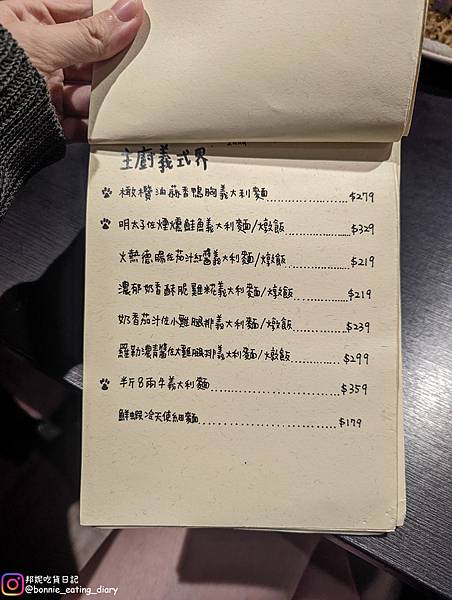 主廚義式界
橄欖油蒜香鴨胸義大利麵 $279
明太子佐煙燻鮭魚義大利麵/燉飯 $329
火熱德腸佐茄汁紅醬義大利麵/燉飯 $219
濃郁奶香酥脆雞柳義大利麵/燉飯 $219
奶香茄汁佐小雞腿排義大利麵/燉飯 $239
羅勒濃青醬佐大雞腿排義大利麵/燉飯 $299
半斤8兩牛義大利麵 $359
鮮蝦冷天使細麵 $179
邦妮吃貨日記
@bonnie_eating_diary